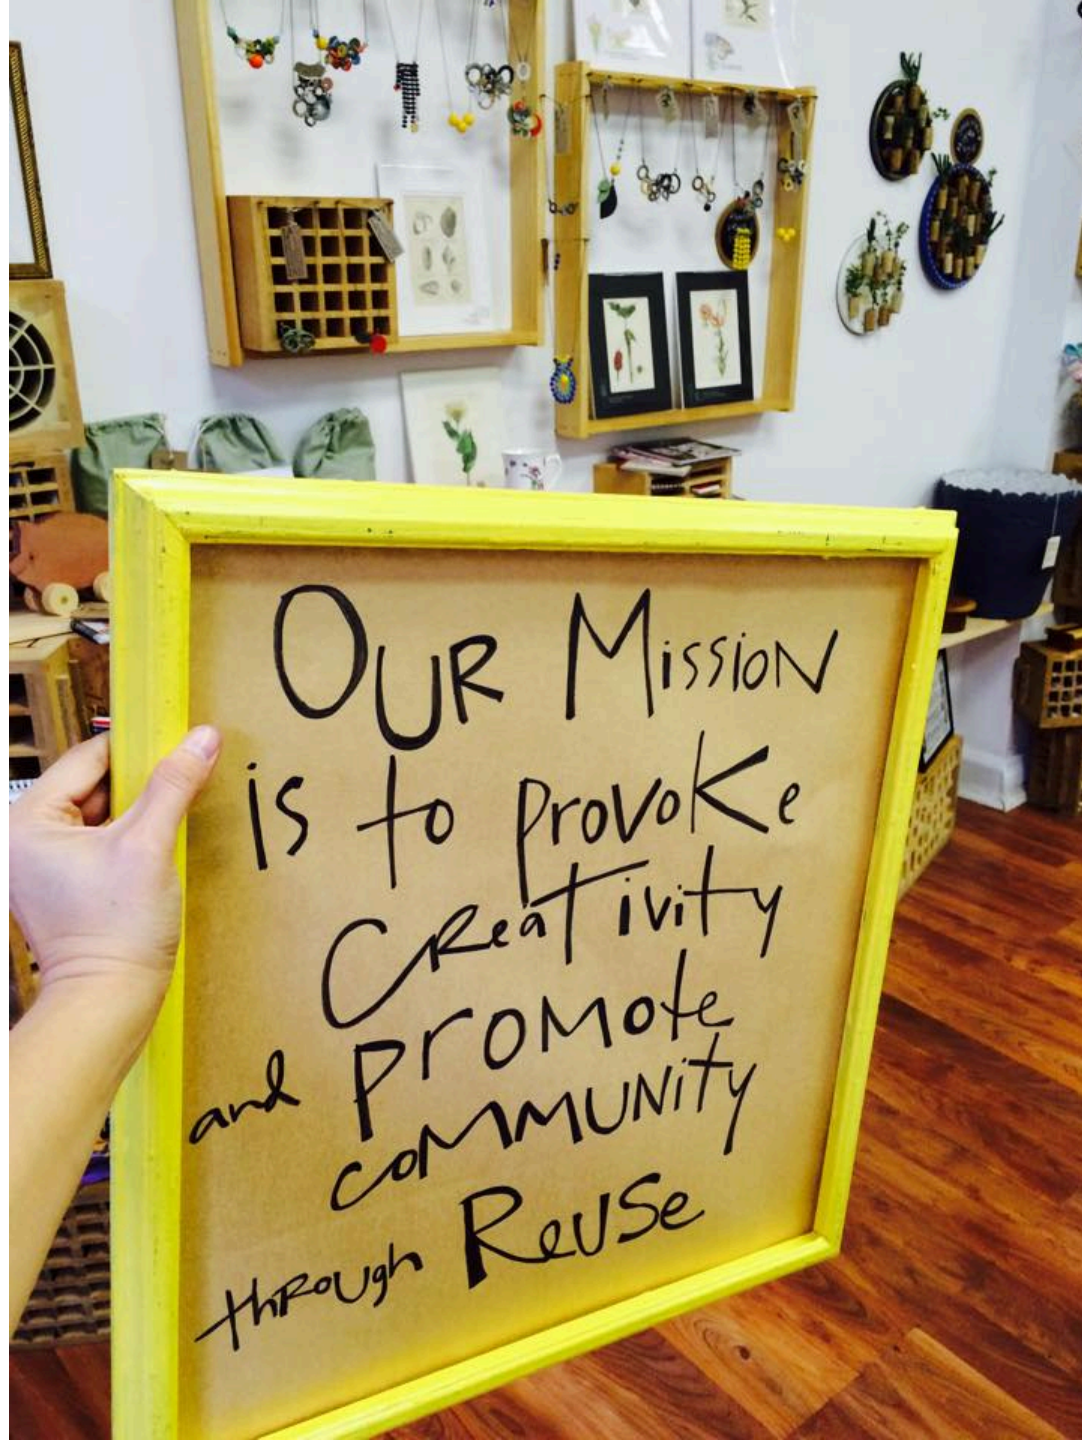 OUR MissioN
is to provoKe
CReaTivity
and proMote
coMMUNity
thRough ReUSe